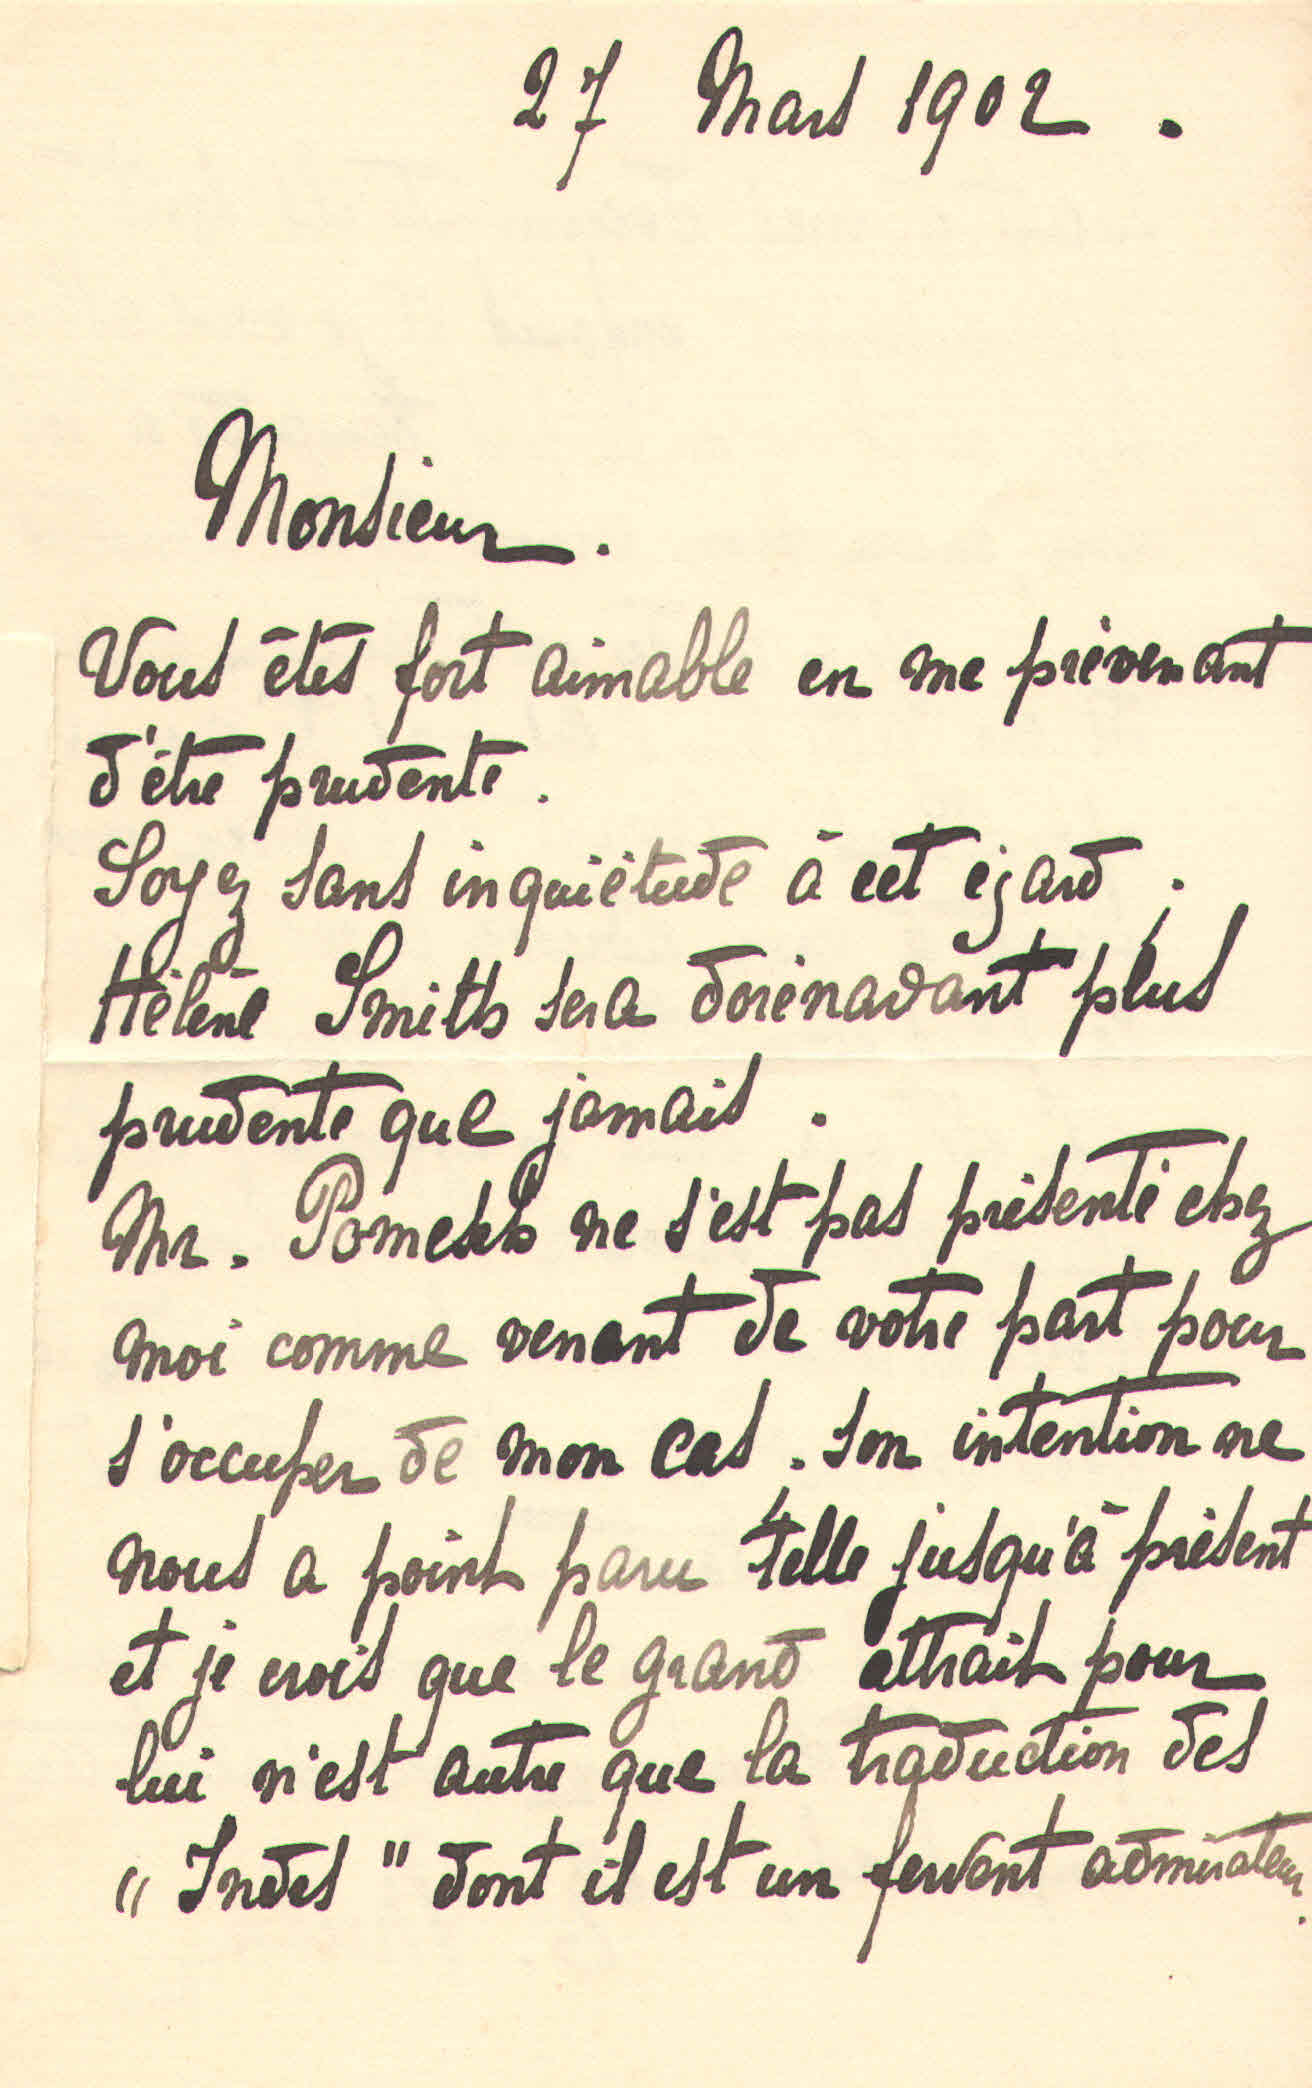 27 Mars 1902.
Monsieur.
Vous êtes fort aimable en me prévenant
d'être prudente.
Soyez sans inquiétude à cet égard;
Hélène Smith sera dorénavant plus
prudente que jamais.
Mr. ne s'est pas présenté chez
moi comme venant de votre part pour
s'occuper de mon cas. Son intention ne
nous a point paru telle jusqu'à présent
et je crois que le grand attrait pour
lui n'est autre que la traduction des
"Indes" dont il est un fervent admirateur.